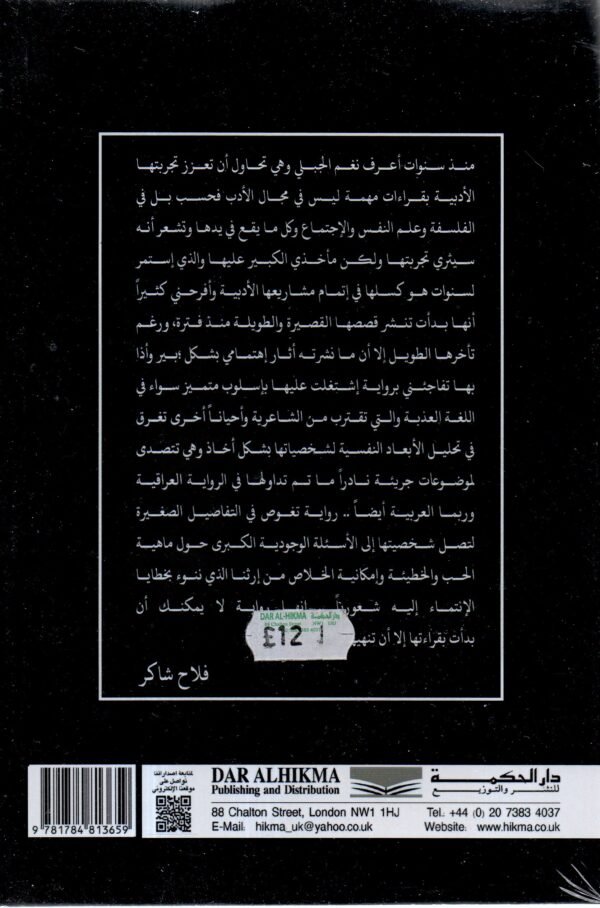 منذ سنوات أعرف نغم الجبلي وهي تحاول أن تعزز تجربتها
الأدبية بقراءات مهمة ليس في مجال الأدب فحسب بل في
الفلسفة وعلم النفس والإجتماع وكل ما يقع في يدها وتشعر أنه
سيثري تجربتها ولكن مأخذي الكبير عليها والذي إستمر
لسنوات هو كسلها في إتمام مشاريعها الأدبية وأفرحني كثيراً
أنها بدأت تنشر قصصها القصيرة والطويلة منذ فترة، ورغم
تأخرها الطويل إلا أن ما نشرته أثار إهتمامي بشكل ؛بير وأذا
بها تفاجئني برواية إشتغلت عليها بإسلوب متميز سواء في
اللغة العذبة والتي تقترب من الشاعرية وأحياناً أخرى تغرق
في تحليل الأبعاد النفسية لشخصياتها بشكل أخاذ وهي تتصدى
لموضوعات جريئة نادراً ما تم تداولها في الرواية العراقية
وربما العربية أيضاً .. رواية تغوص في التفاصيل الصغيرة
لتصل شخصيتها إلى الأسئلة الوجودية الكبرى حول ماهية
الحب والخطيئة وإمكانية الخلاص من إرثنا الذي ننوء بخطايا
الإنتماء إليه رواية لا يمكنك أن
بدأت بقراءتها إلا أن
DAR AL-HIKMA دار الحكمة
88 Chalton Street
£12
فلاح شاكر
لمتابعة اصداراتنا
تواصل على
موقعنا الإلكتروني
9 781784 813659
DAR ALHIKMA
Publishing and Distribution
دار الحكمة
للنشر والتوزيع
88 Chalton Street, London NW1 1HJ Tel: +44 (0) 20 7383 4037
E-Mail: hikma_uk@yahoo.co.uk Website: www.hikma.co.uk